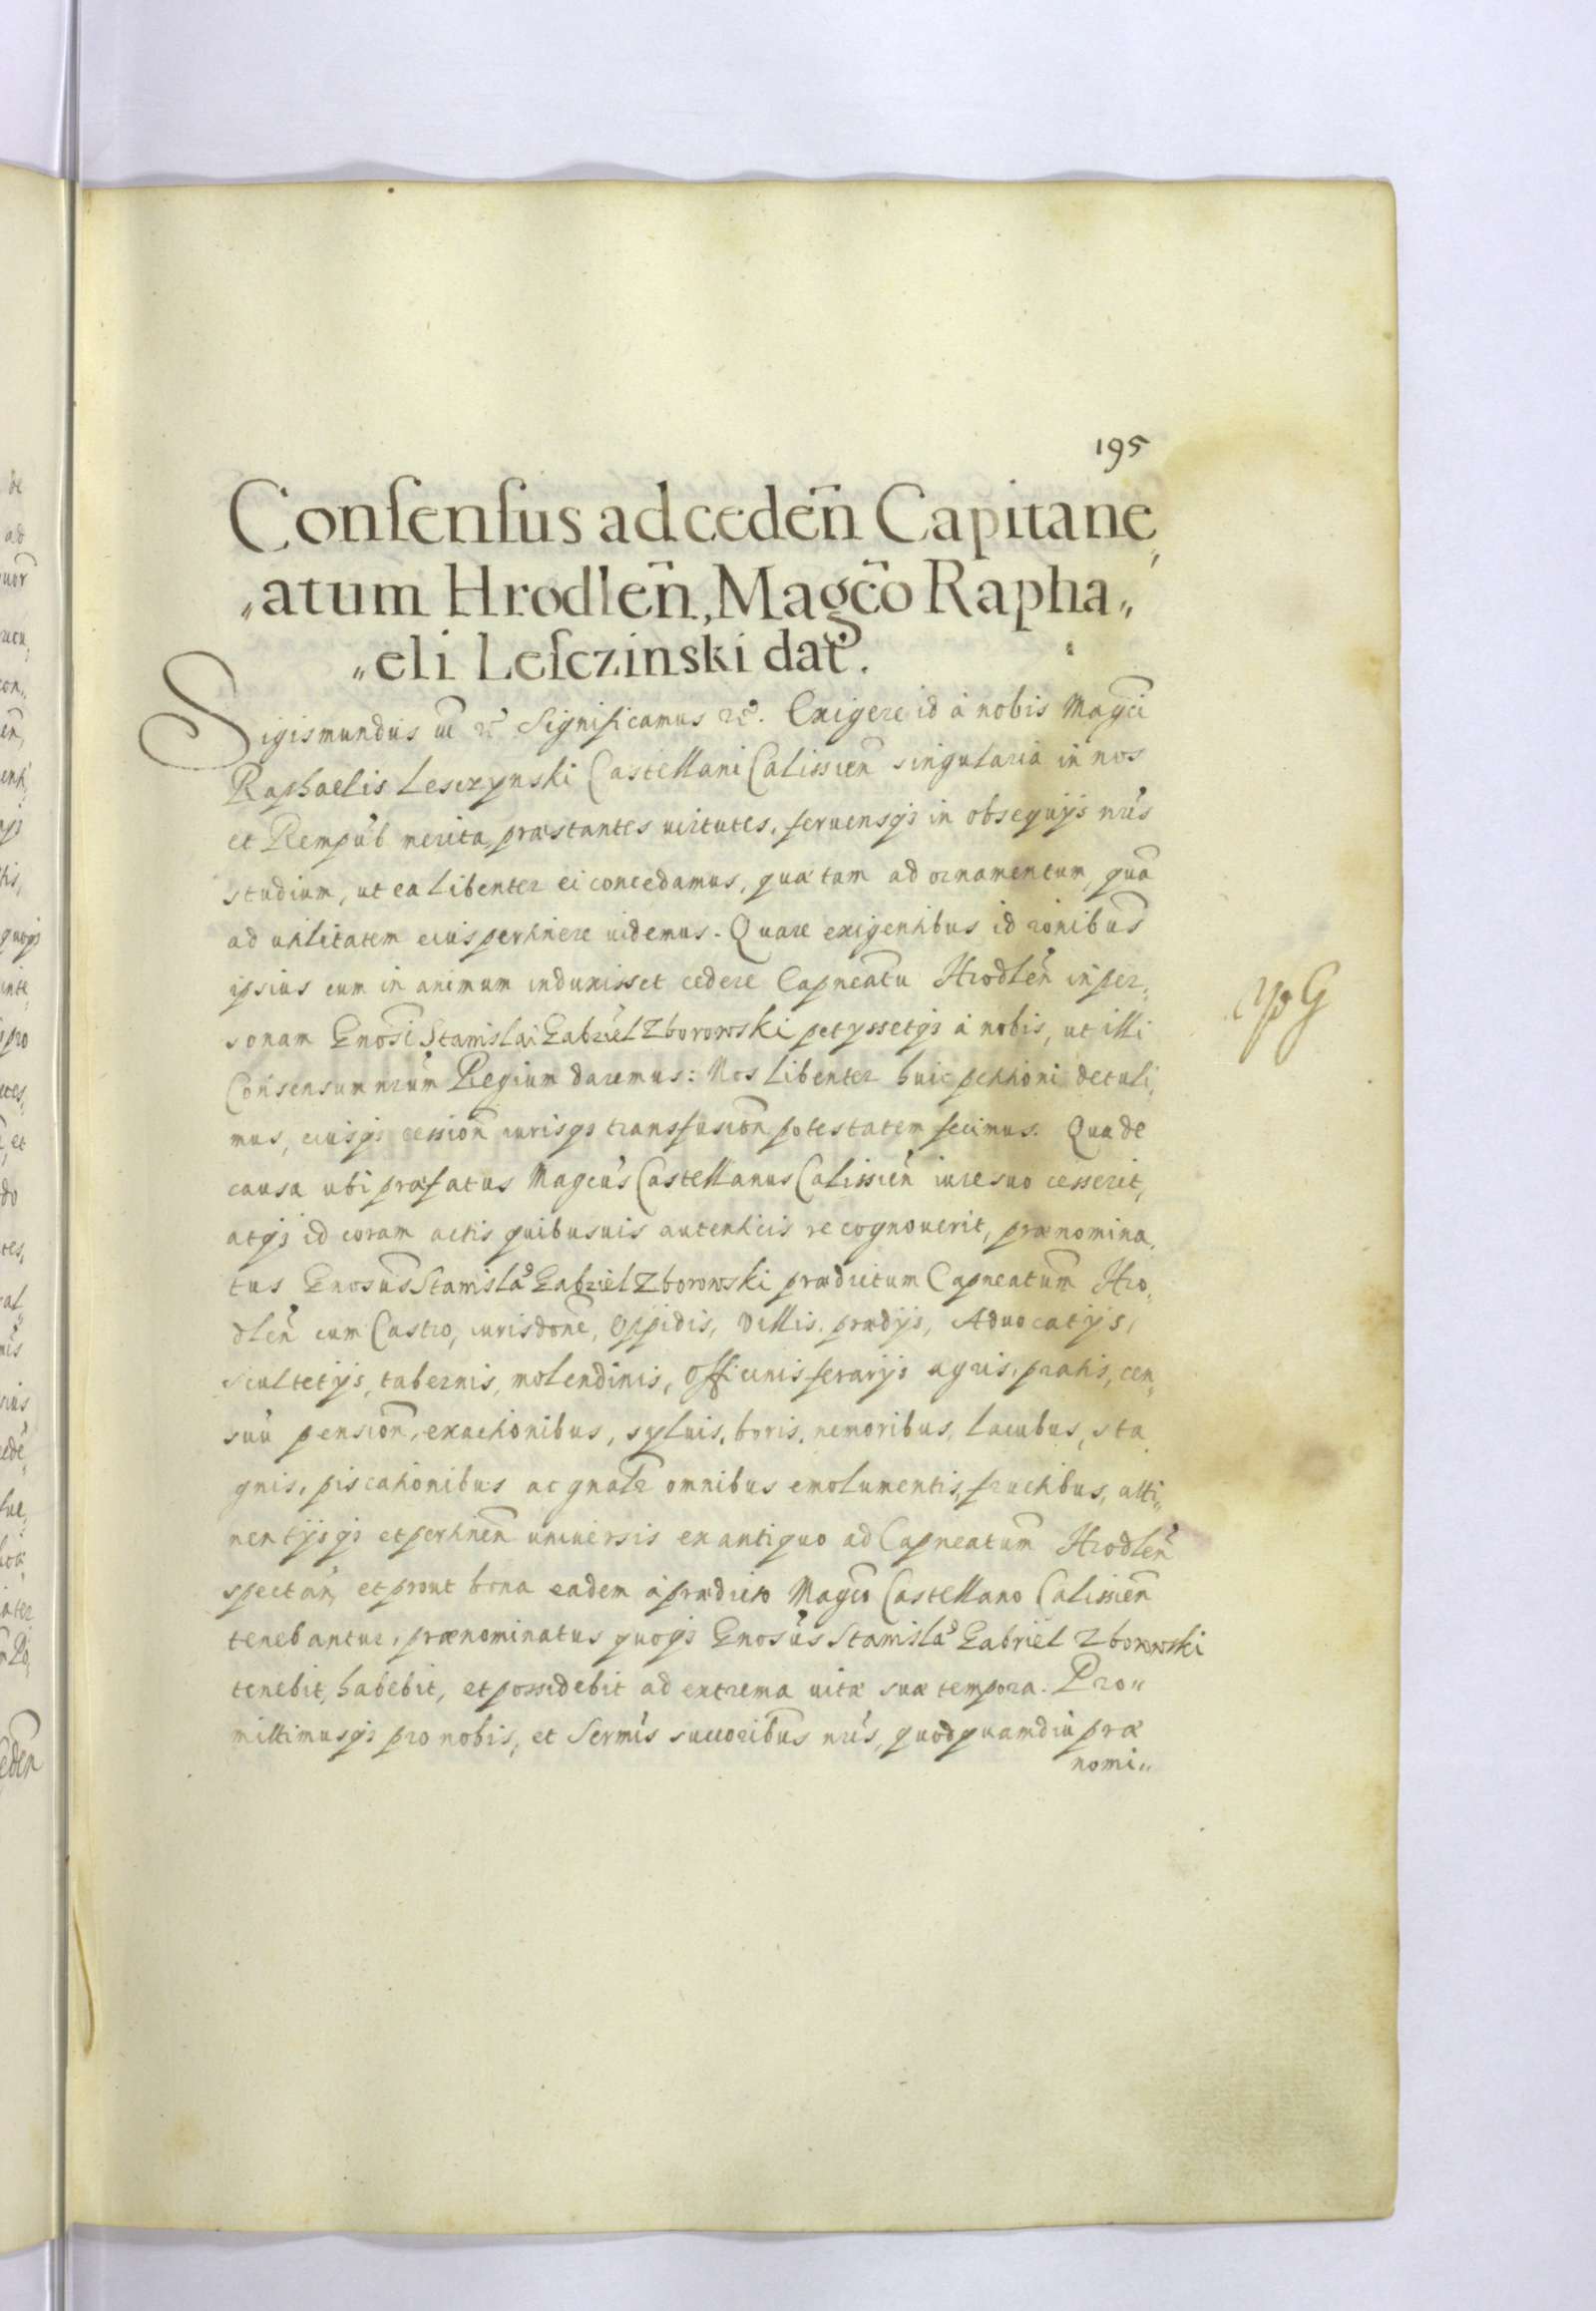 195
Consensus ad ceden̄ Capitane„
„atum Hrodlen̄, Magc̄o Rapha„
„eli Lesczinski dat.
Sigismundus ūt rc̄ Significamus rc̄. Exigere id à nobis Magci
Raphaelis Lesczynski Castellani Calissien̄ singularia in nos
et Rempub merita, præstantes uirtutes, feruensqз in obsequijs nr̄is
studium, ut ea libenter ei concedamus, quæ tam ad ornamentum, quā
ad utilitatem eius pertinere uidemus. Quare exigentibus id rōnibus
ipsius cum in animum induxisset cedere Capneatu Hrodlen̄ in per„
sonam Gnosi Stanislai Gabriel Zborowski petyssetqз à nobis, ut illi
Consensum nrūm Regium daremus: Nos libenter huic petitioni detuli„
mus, eiusqз cession̄ iurisqз transfusion̄ potestatem fecimus. Qua de
causa ubi præfatus Magcus Castellanus Calissien̄ iure suo cesserit,
atqз id coram actis quibusuis autenticis recognouerit, prænomina„
tus Gnosus Stanisla⁹ Gabriel Zborowski prædictum Capneatum Hro„
dlen̄ cum Castro, iurisdōne, Oppidis, Villis, prædijs, Aduocatijs,
scultetijs, tabernis, molendinis, Officinis ferarijs agris, pratis, cen„
suū pension̄, exactionibus, syluis, boris, nemoribus, lacubus, sta„
gnis, piscationibus ac gnalr omnibus emolumentis, fructibus, atti„
nentijsqз et pertinen̄ uniuersis ex antiquo ad Capneatum Hrodlen̄
spectan̄, et prout bona eadem à prædicto Magco Castellano Calissien̄
tenebantur, prænominatus quoqз Gnosus Stanisla⁹ Gabriel Zborowski
tenebit, habebit, et possidebit ad extrema uitæ suæ tempora. Pro„
mittimusqз pro nobis, et Sermis succoribus nr̄is, quod quamdiu præ
nomi„